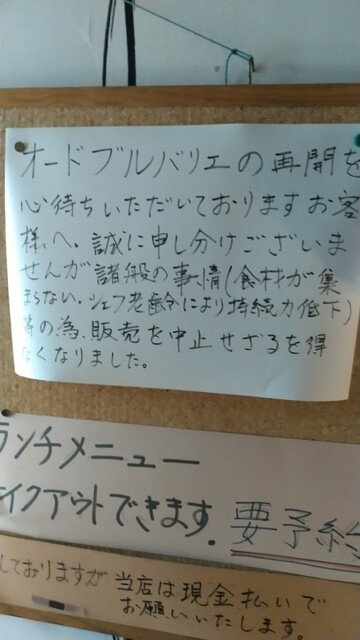 オードブルバリエの再開を
心待ちいただいておりますお客
様へ。誠に申し分けございま
せんが諸般の事情(食材が集
まらない。シェフ老齢により持続力低下)
等の為、販売を中止せざるを得
なくなりました。
ランチメニュー
テイクアウトできます。要予約
しておりますが 当店は現金払いで
お願いいたします。